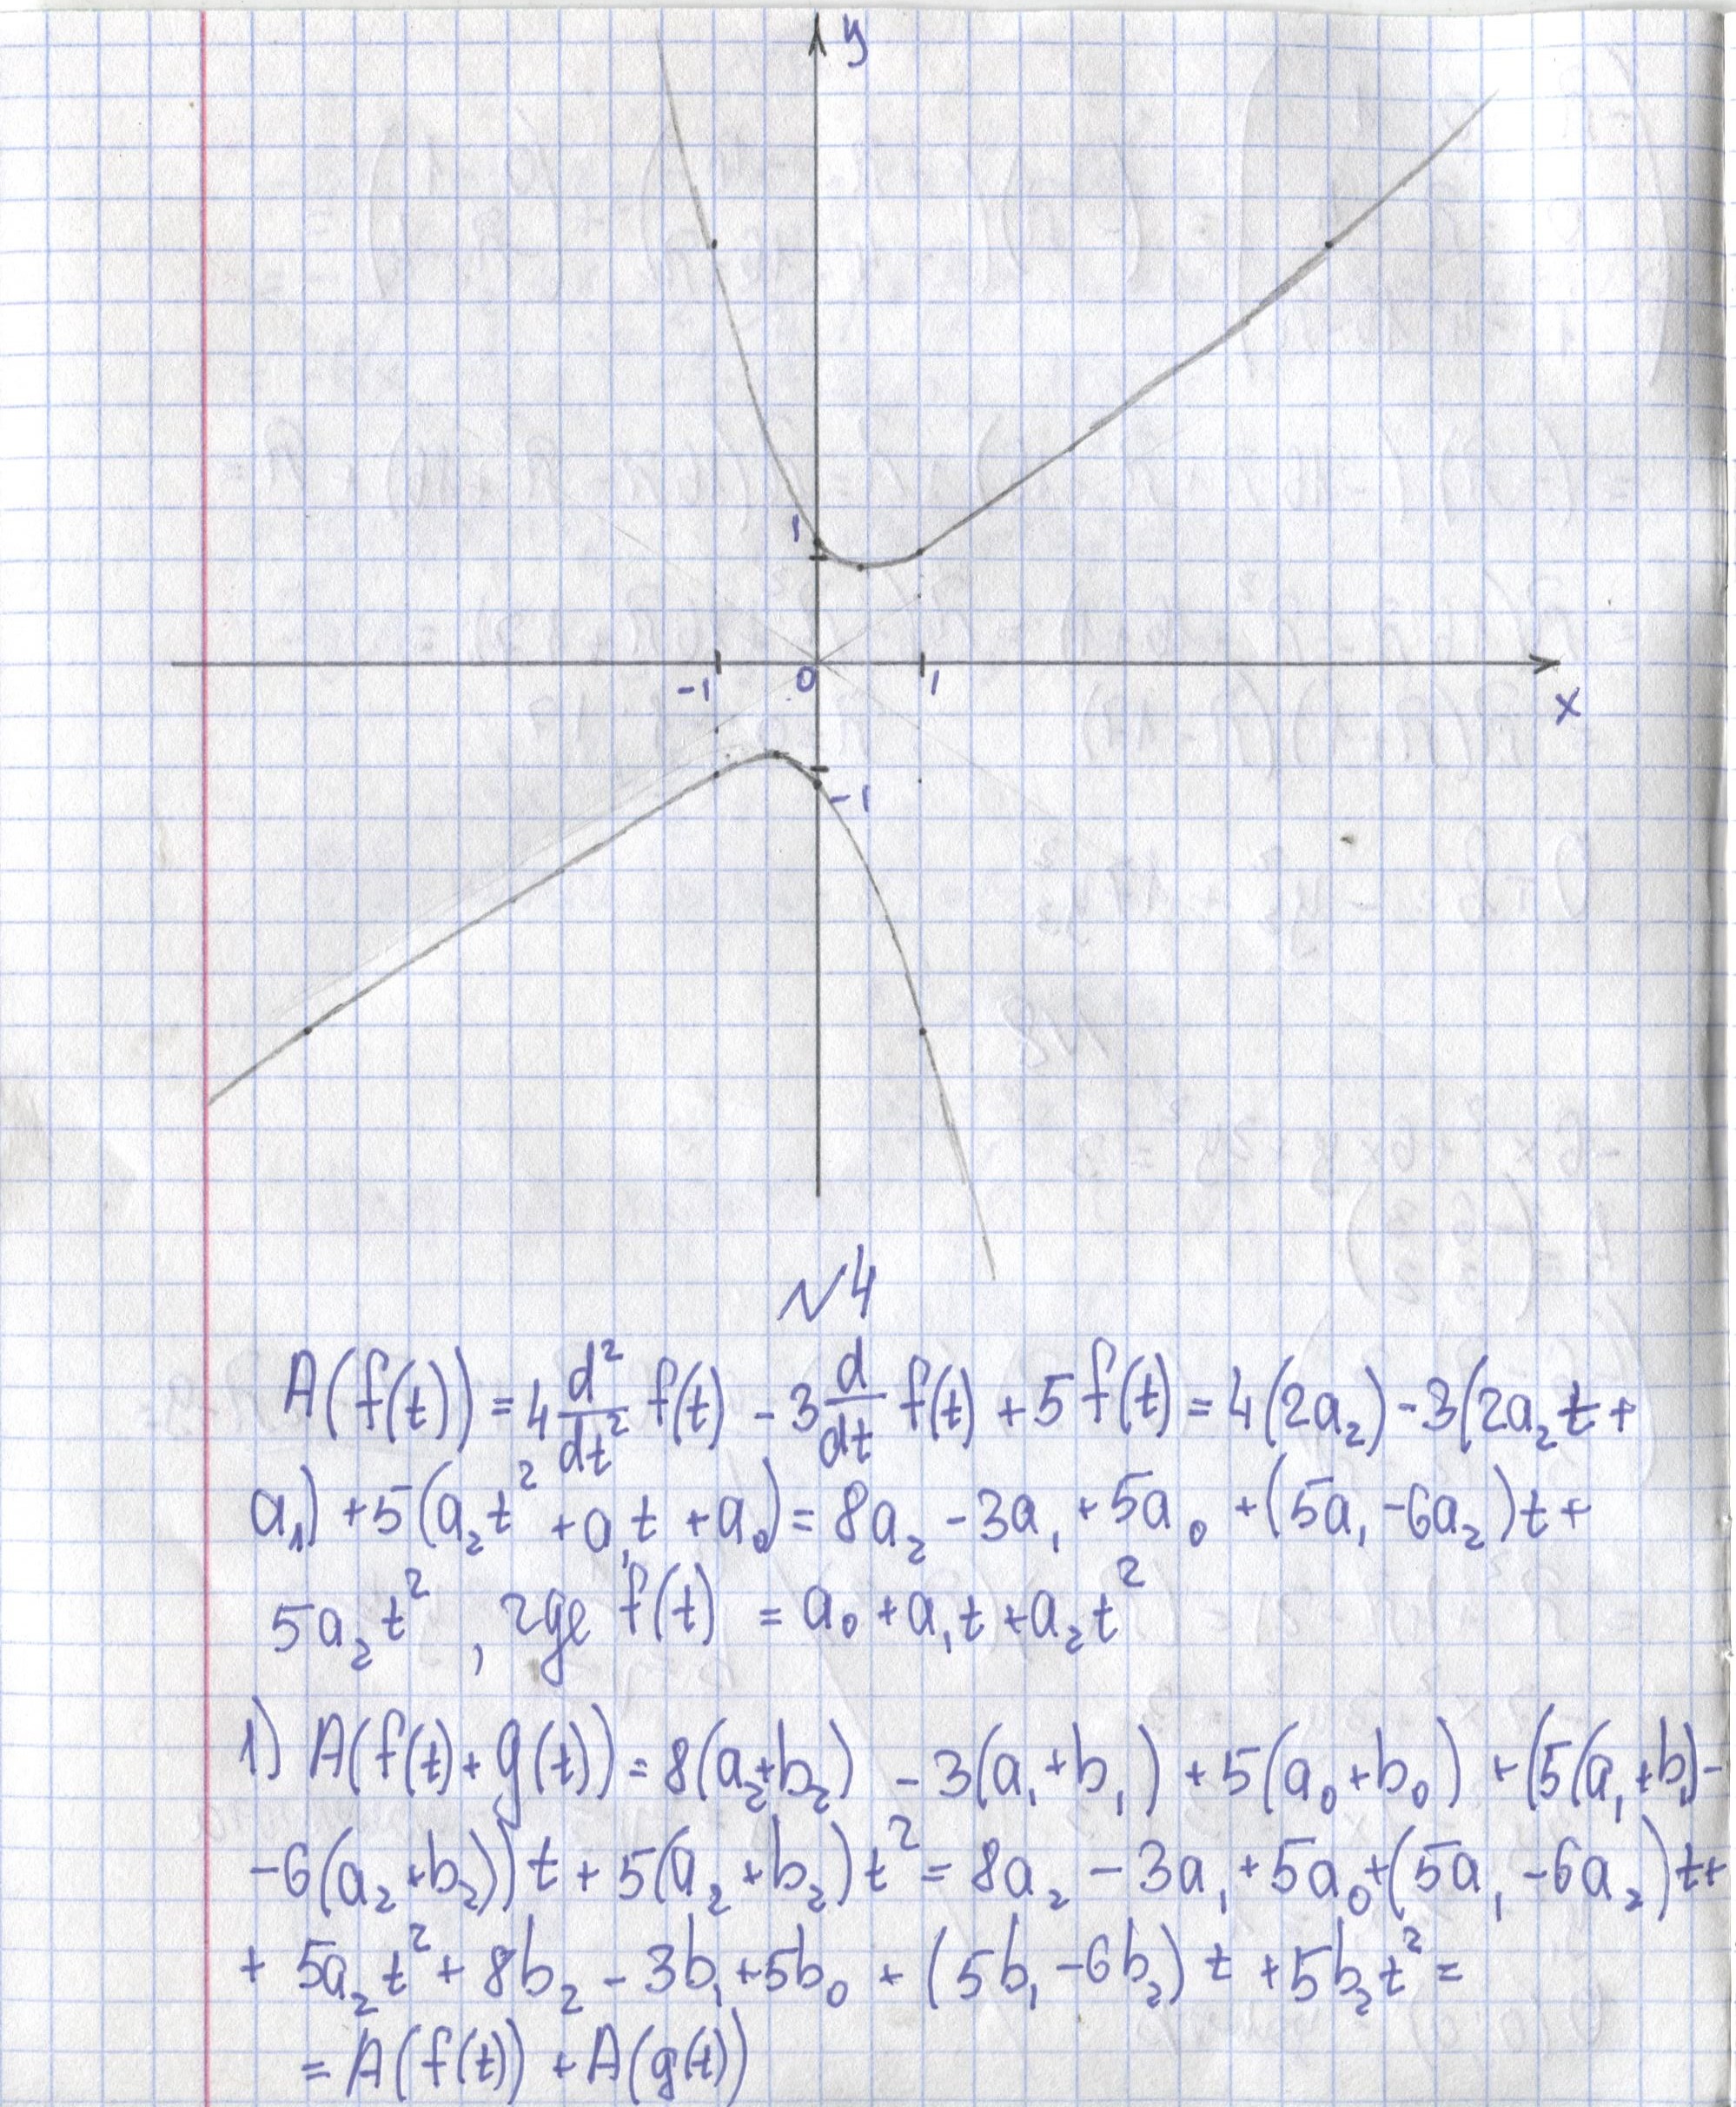 y
1
-1 0 1
x
-1
№4
A(f(t)) = 4 d²/dt² f(t) - 3 d/dt f(t) + 5 f(t) = 4(2a₂) - 3(2a₂t +
a₁) + 5(a₂t² + a₁t + a₀) = 8a₂ - 3a₁ + 5a₀ + (5a₁ - 6a₂)t +
5a₂t² , где f(t) = a₀ + a₁t + a₂t²
1) A(f(t) + g(t)) = 8(a₂+b₂) - 3(a₁+b₁) + 5(a₀+b₀) + (5(a₁+b₁) -
-6(a₂+b₂))t + 5(a₂+b₂)t² = 8a₂ - 3a₁ + 5a₀ + (5a₁ - 6a₂)t +
+ 5a₂t² + 8b₂ - 3b₁ + 5b₀ + (5b₁ - 6b₂)t + 5b₂t² =
= A(f(t)) + A(g(t))